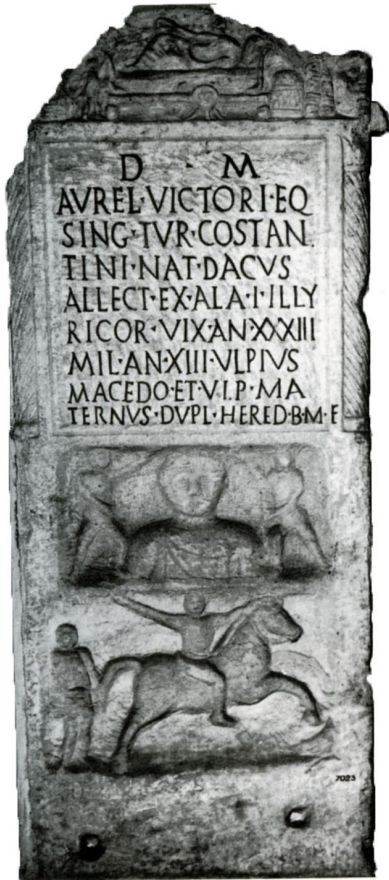 D · M
AVREL·VICTORI·EQ
SING·TVR·COSTAN
TINI·NAT·DACVS
ALLECT·EX·ALA·I·ILLY
RICOR·VIX·AN·XXXIII
MIL·AN·XIII·VLPIVS
MACEDO·ET·VI.P·MA
TERNVS·DVPL·HERED·B·M·F
7023